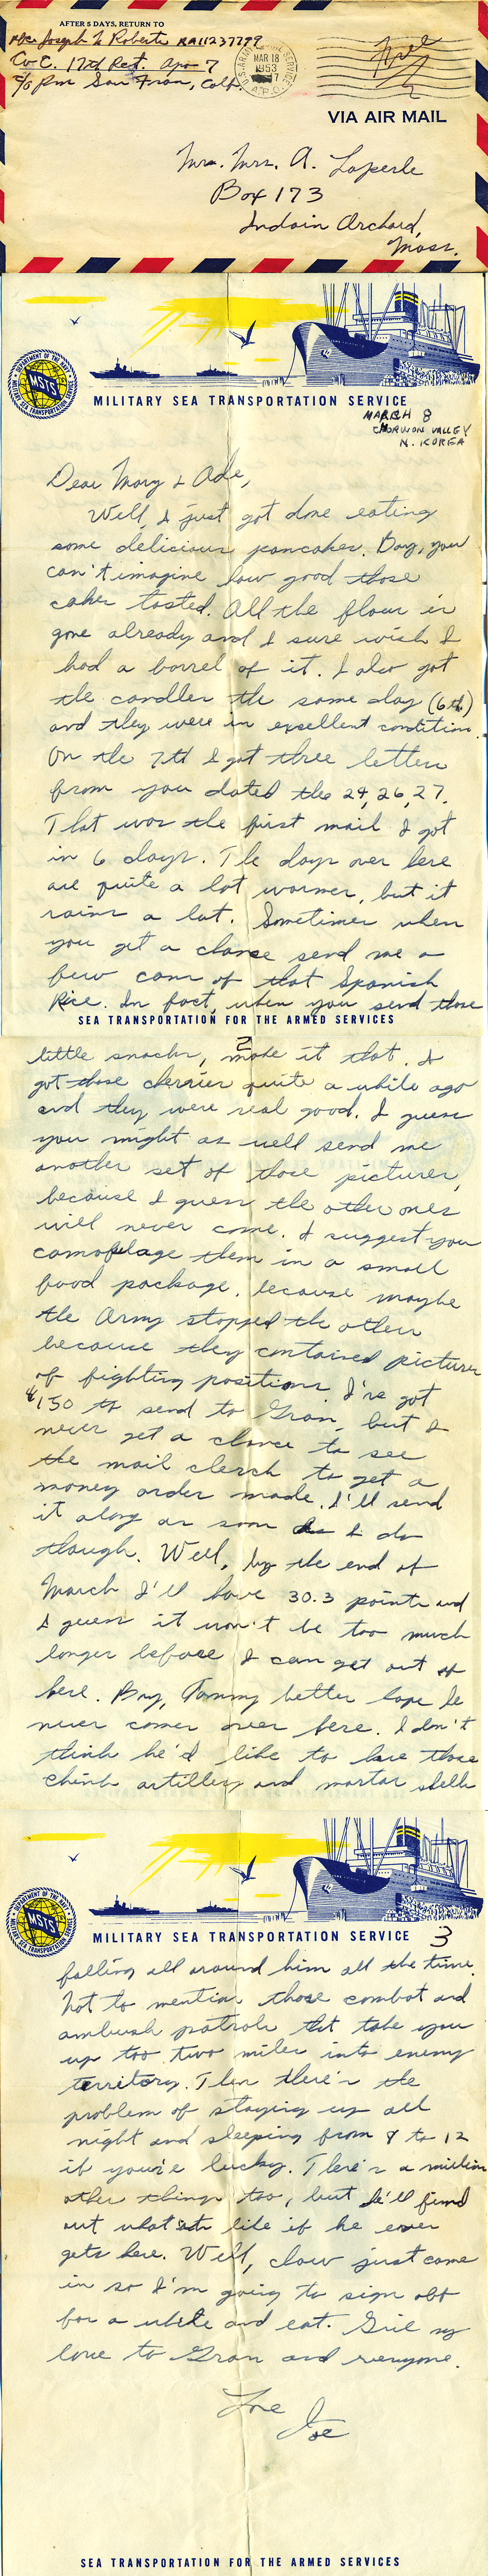 AFTER 5 DAYS, RETURN TO
Pfc. Joseph L Roberts RA11237799
Co C. 17th Regt. Apo 7
c/o Pm San Fran, Calf.
U.S. ARMY SERVICE
MAR 18
1953
A.P.O.
Free
VIA AIR MAIL
Mr. Mrs. A. Laperle
Box 173
Indain Orchard,
Mass.
DEPARTMENT OF THE NAVY
MSTS
MILITARY SEA TRANSPORTATION SERVICE
MILITARY SEA TRANSPORTATION SERVICE
MARCH 8
CHORWON VALLEY
N. KOREA
Dear Mary & Ade,
Well, I just got done eating
some delicious pancakes. Boy, you
can't imagine how good those
cakes tasted. All the flour is
gone already and I sure wish I
had a barrel of it. I also got
the candles the same day (6th)
and they were in excellent condition.
On the 7th I got three letters
from you dated the 24, 26, 27.
That was the first mail I got
in 6 days. The days over here
are quite a lot warmer, but it
rains a lot. Sometimes when
you get a chance send me a
few cans of that Spanish
Rice. In fact, when you send those
SEA TRANSPORTATION FOR THE ARMED SERVICES
2
little snacks, make it that. I
got those cherries quite a while ago
and they were real good. I guess
you might as well send me
another set of those pictures,
because I guess the other ones
will never come. I suggest you
camoflage them in a small
food package, because maybe
the Army stopped the others
because they contained pictures
of fighting positions. I've got
$150 to send to Gram, but I
never get a chance to see
the mail clerck to get a
money order made. I'll send
it along as soon as I do
though. Well, by the end of
March I'll have 30.3 points and
I guess it won't be too much
longer before I can get out of
here. Boy, Tommy better hope he
never comes over here. I don't
think he'd like to have those
chink artillery and mortar shells
DEPARTMENT OF THE NAVY
MSTS
MILITARY SEA TRANSPORTATION SERVICE
MILITARY SEA TRANSPORTATION SERVICE
3
falling all around him all the time.
Not to mention those combat and
ambush patrols tht take you
up too two miles into enemy
territory. Then there's the
problem of staying up all
night and sleeping from 8 to 12
if you're lucky. There's a million
other things too, but he'll find
out what its like if he ever
gets here. Well, chow just came
in so I'm going to sign off
for a while and eat. Give my
love to Gram and everyone.
Love
Joe
SEA TRANSPORTATION FOR THE ARMED SERVICES